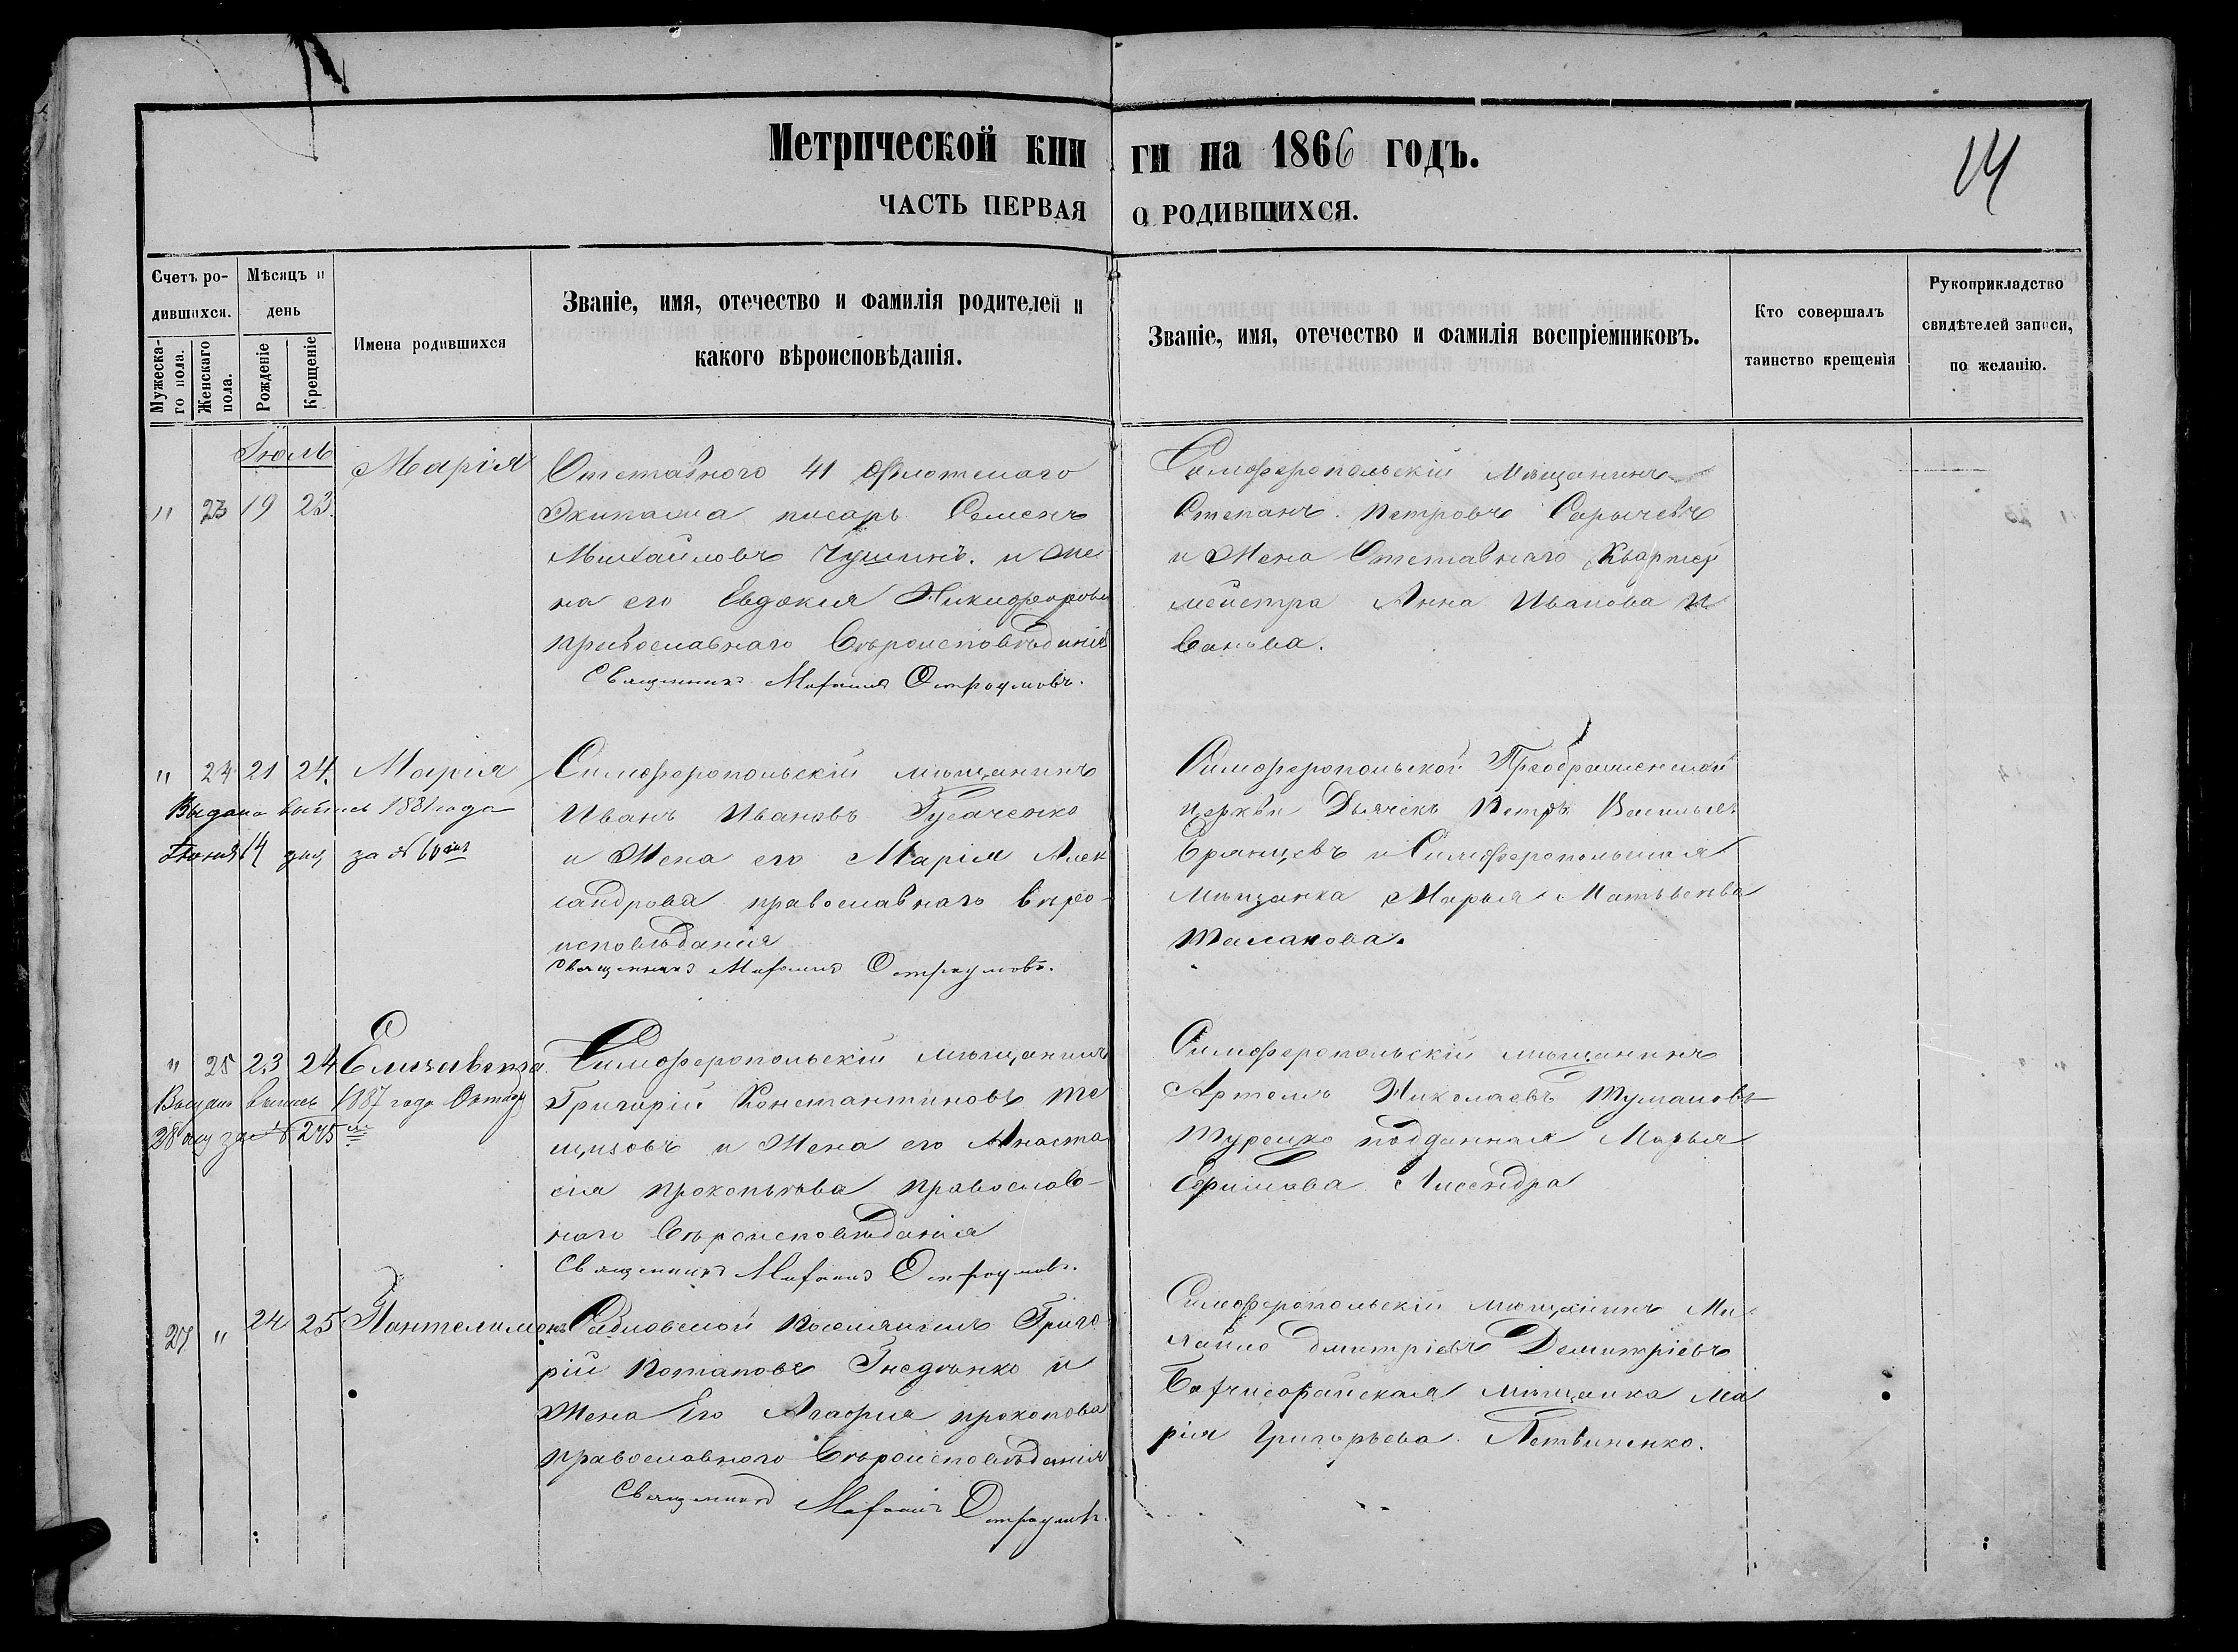 Метрической кни ги на 1866 годъ.
14
ЧАСТЬ ПЕРВАЯ О РОДИВШИХСЯ.
Счетъ ро-
дившихся.
Мужеска-
го пола.
Женскаго
пола.
Мѣсяцъ и
день
Рожденіе
Крещеніе
Имена родившихся
Званіе, имя, отечество и фамилія родителей и
какого вѣроисповѣданія.
Званіе, имя, отечество и фамилія воспріемниковъ.
Кто совершалъ
таинство крещенія
Рукоприкладство
свидѣтелей записи,
по желанію.
Іюль
" 23 19 23.
Марія
Отставного 41 Флотскаго
Экипажа писарь Семенъ
Михайловъ Чушинъ. и же
на его Евдокия Никифорова
православнаго Вѣроисповѣдинія
Священникъ Остроумовъ.
Симферопольскій Мѣщанинъ
Степанъ Петровъ Сарычевъ
и Жена Отставнаго Квартер
мейстра Анна Иванова И
ванова.
" 24 21 24. Марія
Выдана выпись 1881 года
Іюня 14 дня за № 60
Симферопольскій мѣщанинъ
Иванъ Ивановъ Гусаченко
и Жена его Марія Алек
сандрова православнаго вѣро-
исповѣданія
Священникъ Остроумовъ.
Симферопольской Преображенской
церкви Дьячекъ Петръ Васильев.
Брянцевъ и Симферопольская
Мѣщанка Марья Матвѣева
Талакова.
" 25 23 24 Елизавета
Выдано выпись 1887 года Октяб
28 дня за № 245
Симферопольскій мѣщанинъ
Григорій Константиновъ Те
щизовъ и Жена его Анаста
сія прокопьева православ-
наго Вѣроисповѣданія
Священникъ Остроумовъ.
Симферопольскій мѣщанинъ
Артемъ Николаевъ Тумановъ
Турецко подданная Марья
Ефимова Лисендра
27 " 24 25 Пантелимонъ
Поселянинъ Григо
рій Потаповъ Гнеденко и
Жена Его Агафия прокопова
православного Вѣроисповѣданія
Священникъ Остроумовъ.
Симферопольскій мѣщанинъ Ми-
хаило дмитріевъ Демитріевъ
Бахчисарайская мѣщанка Ма
рія Григорьева Литвиненко.